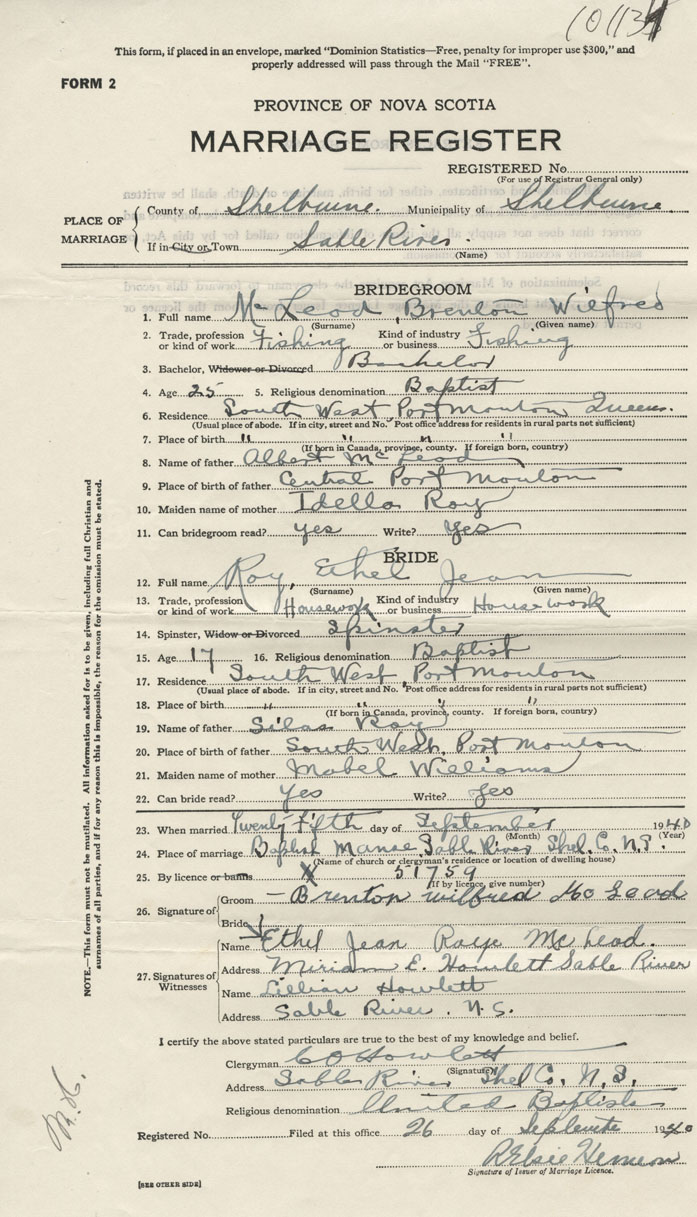 10113
This form, if placed in an envelope, marked "Dominion Statistics—Free, penalty for improper use $300," and
properly addressed will pass through the Mail "FREE".
FORM 2
PROVINCE OF NOVA SCOTIA
MARRIAGE REGISTER
REGISTERED No.
(For use of Registrar General only)
PLACE OF MARRIAGE
County of Shelburne. Municipality of Shelburne.
If in City or Town Sable River.
(Name)
BRIDEGROOM
1. Full name McLeod, Brenton Wilfred
(Surname) (Given name)
2. Trade, profession or kind of work Fishing Kind of industry or business Fishing
3. Bachelor, Widower or Divorced Bachelor
4. Age 25 5. Religious denomination Baptist
6. Residence South West, Port Mouton, Queens.
(Usual place of abode. If in city, street and No. Post office address for residents in rural parts not sufficient)
7. Place of birth " " " "
(If born in Canada, province, county. If foreign born, country)
8. Name of father Albert McLeod
9. Place of birth of father Central Port Mouton
10. Maiden name of mother Idella Roy
11. Can bridegroom read? yes Write? yes
BRIDE
12. Full name Roy, Ethel Jean
(Surname) (Given name)
13. Trade, profession or kind of work Housework Kind of industry or business Housework
14. Spinster, Widow or Divorced Spinster
15. Age 17 16. Religious denomination Baptist
17. Residence South West, Port Mouton
(Usual place of abode. If in city, street and No. Post office address for residents in rural parts not sufficient)
18. Place of birth " " " "
(If born in Canada, province, county. If foreign born, country)
19. Name of father Silas Roy
20. Place of birth of father South West, Port Mouton
21. Maiden name of mother Mabel Williams
22. Can bride read? Yes Write? Yes
23. When married Twenty Fifth day of September 1940
(Month) (Year)
24. Place of marriage Baptist Manse Sable River Shel. Co. N.S.
(Name of church or clergyman's residence or location of dwelling house)
25. By licence or banns X 51759
(If by licence, give number)
26. Signature of
Groom Brenton wilfred Mc Leod
Bride
27. Signatures of Witnesses
Name Ethel Jean Raye McLeod.
Address Miriam E. Howlett Sable River
Name Lillian Howlett
Address Sable River. N.S.
I certify the above stated particulars are true to the best of my knowledge and belief.
Clergyman C O Howlett
(Signature)
Address Sable River Shel Co. N.S.
Religious denomination United Baptist
Registered No. Filed at this office 26 day of September 1940
Signature of Issuer of Marriage Licence.
[SEE OTHER SIDE]
NOTE.—This form must not be mutilated. All information asked for is to be given, including full Christian and
surnames of all parties, and if for any reason this is impossible, the reason for the omission must be stated.